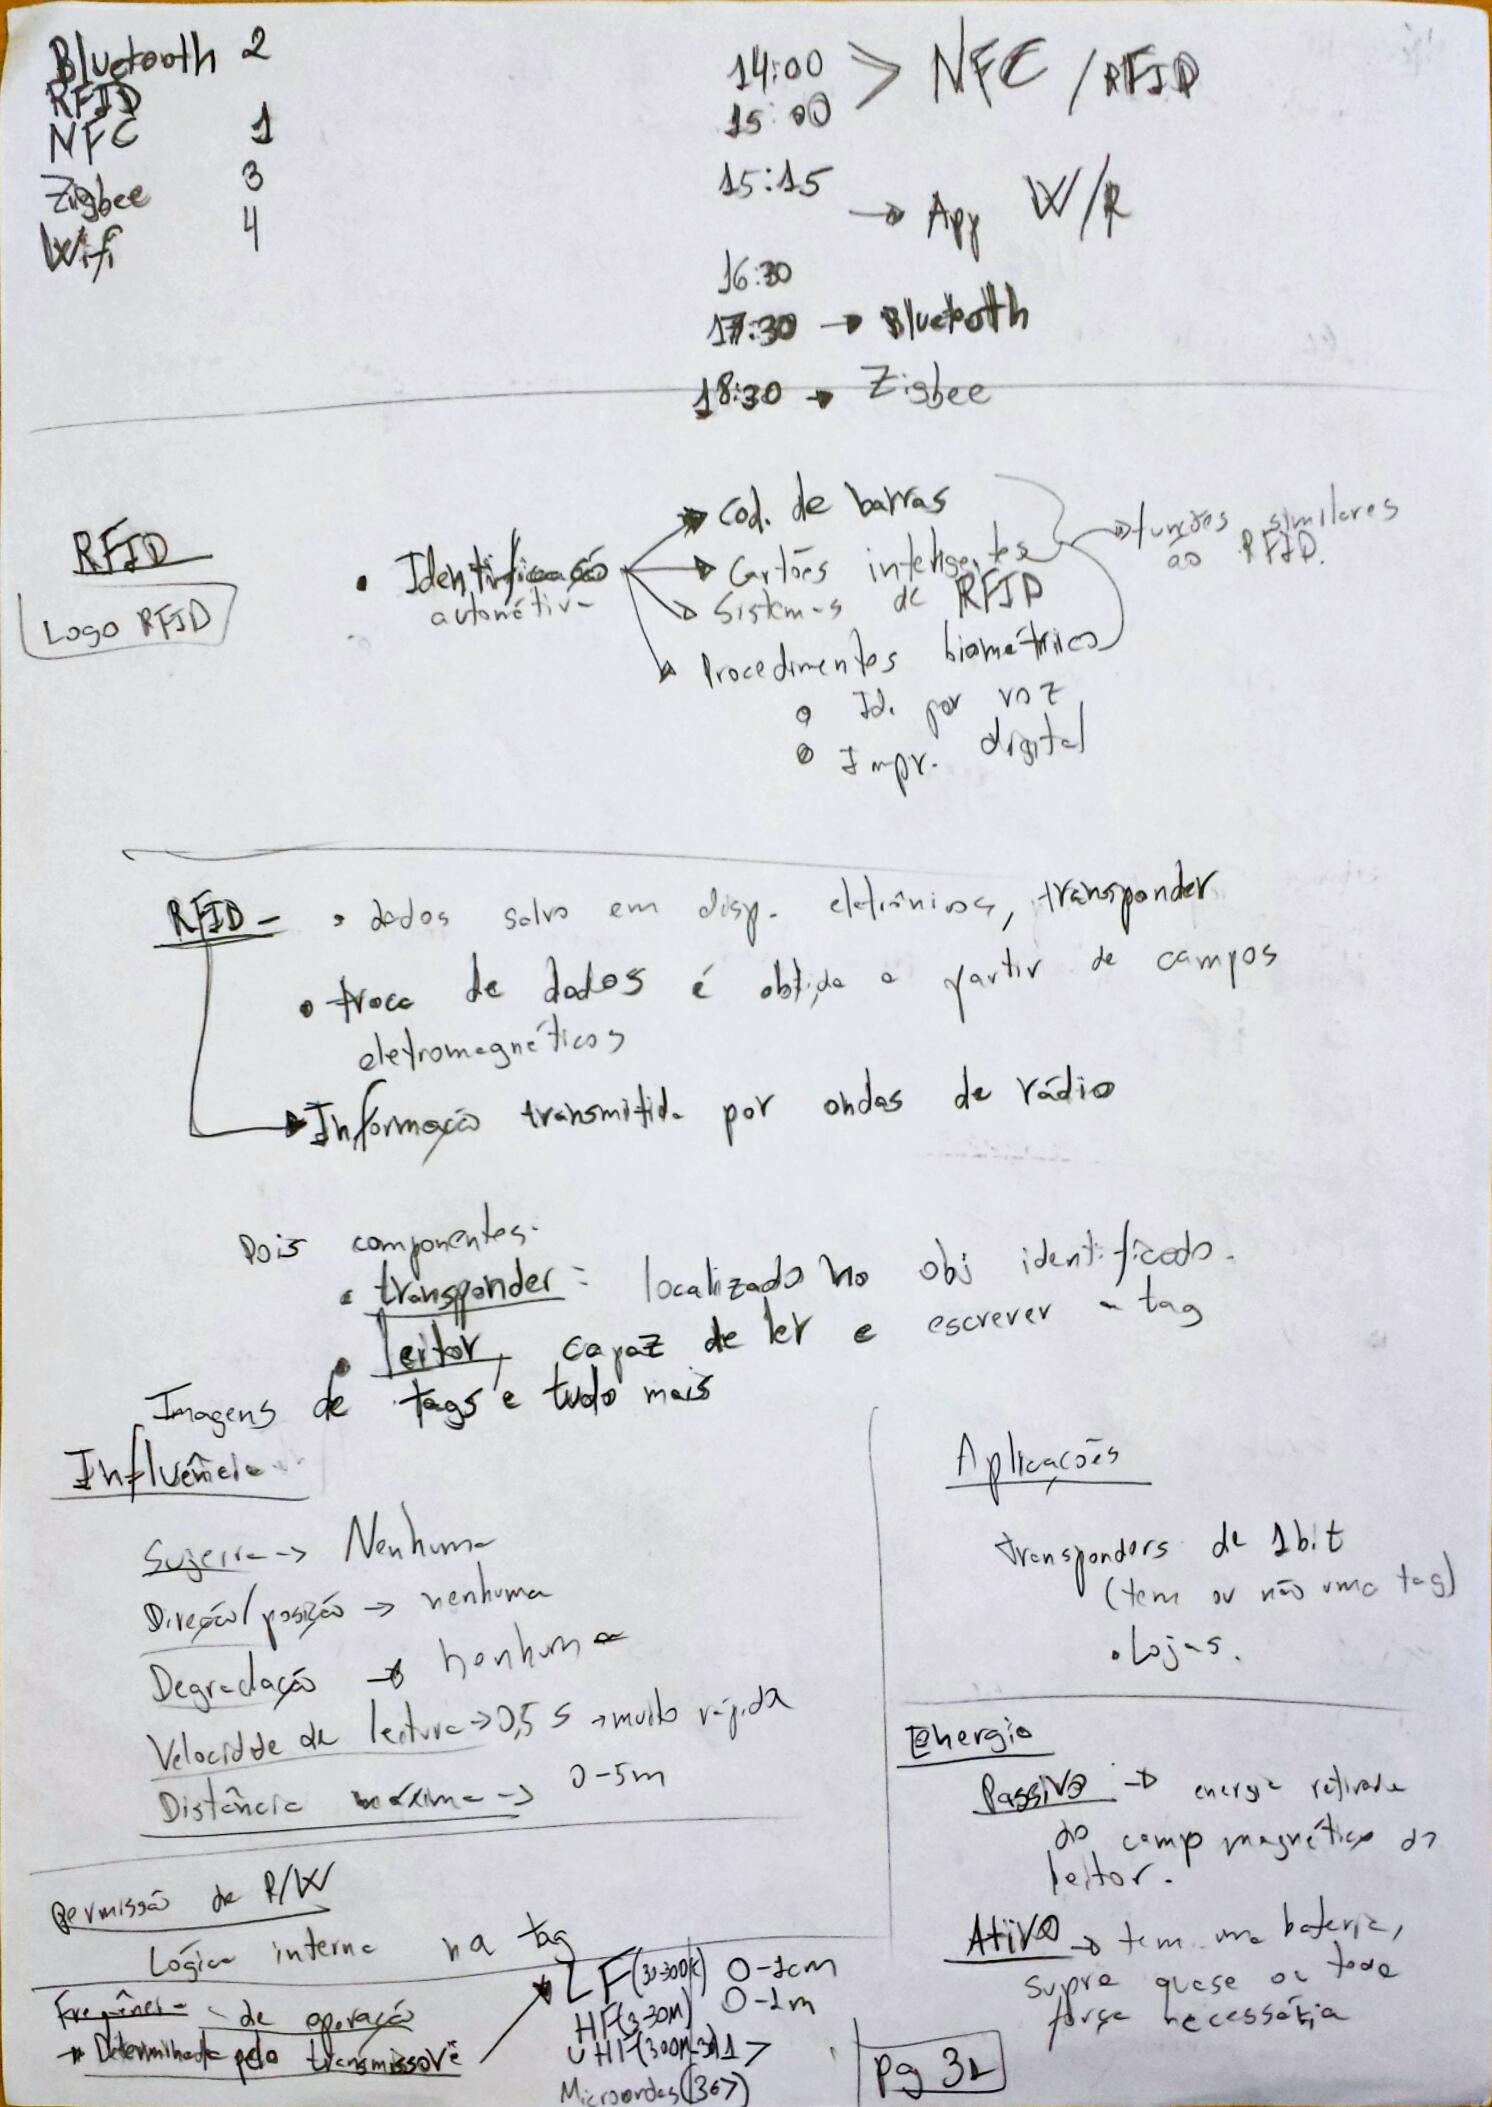 Bluetooth 2
RFID
NFC 1
Zigbee 3
Wifi 4
14:00 > NFC / RFID
15:00
15:15
→ App W/R
16:30
17:30 → Bluetooth
18:30 → Zigbee
RFID
Logo RFID
• Identificação
automática
→ Cod. de barras
→ Cartões inteligentes
→ Sistemas de RFID
→ Procedimentos biométricos
o Id. por voz
o Impr. digital
→ funções similares
ao RFID.
RFID - • dados salvo em disp. eletrônicos, transponder
• troca de dados é obtida a partir de campos
eletromagnéticos
→ Informação transmitida por ondas de rádio
Dois componentes.
• transponder: localizado no obj identificado.
• leitor, capaz de ler e escrever a tag
Imagens de tags e tudo mais
Influência
Sujeira → Nenhuma
Direção/posição → nenhuma
Degradação → nenhuma
Velocidade de leitura → 0,5 s → muito rápida
Distância máxima → 0-5m
Permissão de R/W
Lógica interna na tag
Frequência de operação
→ Determinada pelo
LF (30-300K) 0-1cm
HF (3-30M) 0-1m
UHF (300M-3G) 1>
Microondas (3G>)
Aplicações
transponders de 1bit
(tem ou não uma tag)
• Lojas.
Energia
Passivo → energia retirada
do camp magnético do
leitor.
Ativo → tem uma bateria,
supre quase ou toda
força necessária